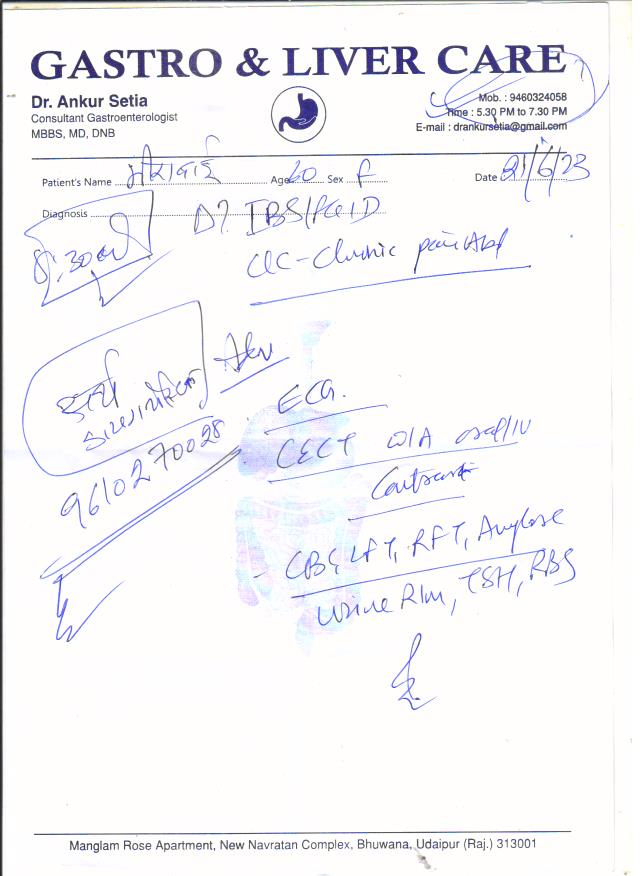 GASTRO & LIVER CARE
Dr. Ankur Setia
Consultant Gastroenterologist
MBBS, MD, DNB
Mob. : 9460324058
Time : 5.30 PM to 7.30 PM
E-mail : drankursetia@gmail.com
Patient's Name Age 60 Sex F Date 21/6/23
Diagnosis D? IBS/
c/c - Chronic pain Abd
Adv
ECG.
9610270028
CECT W/A oral/IV
Contrast
- CBC, LFT, RFT, Amylase
Urine R/m, TSH, RBS
Manglam Rose Apartment, New Navratan Complex, Bhuwana, Udaipur (Raj.) 313001